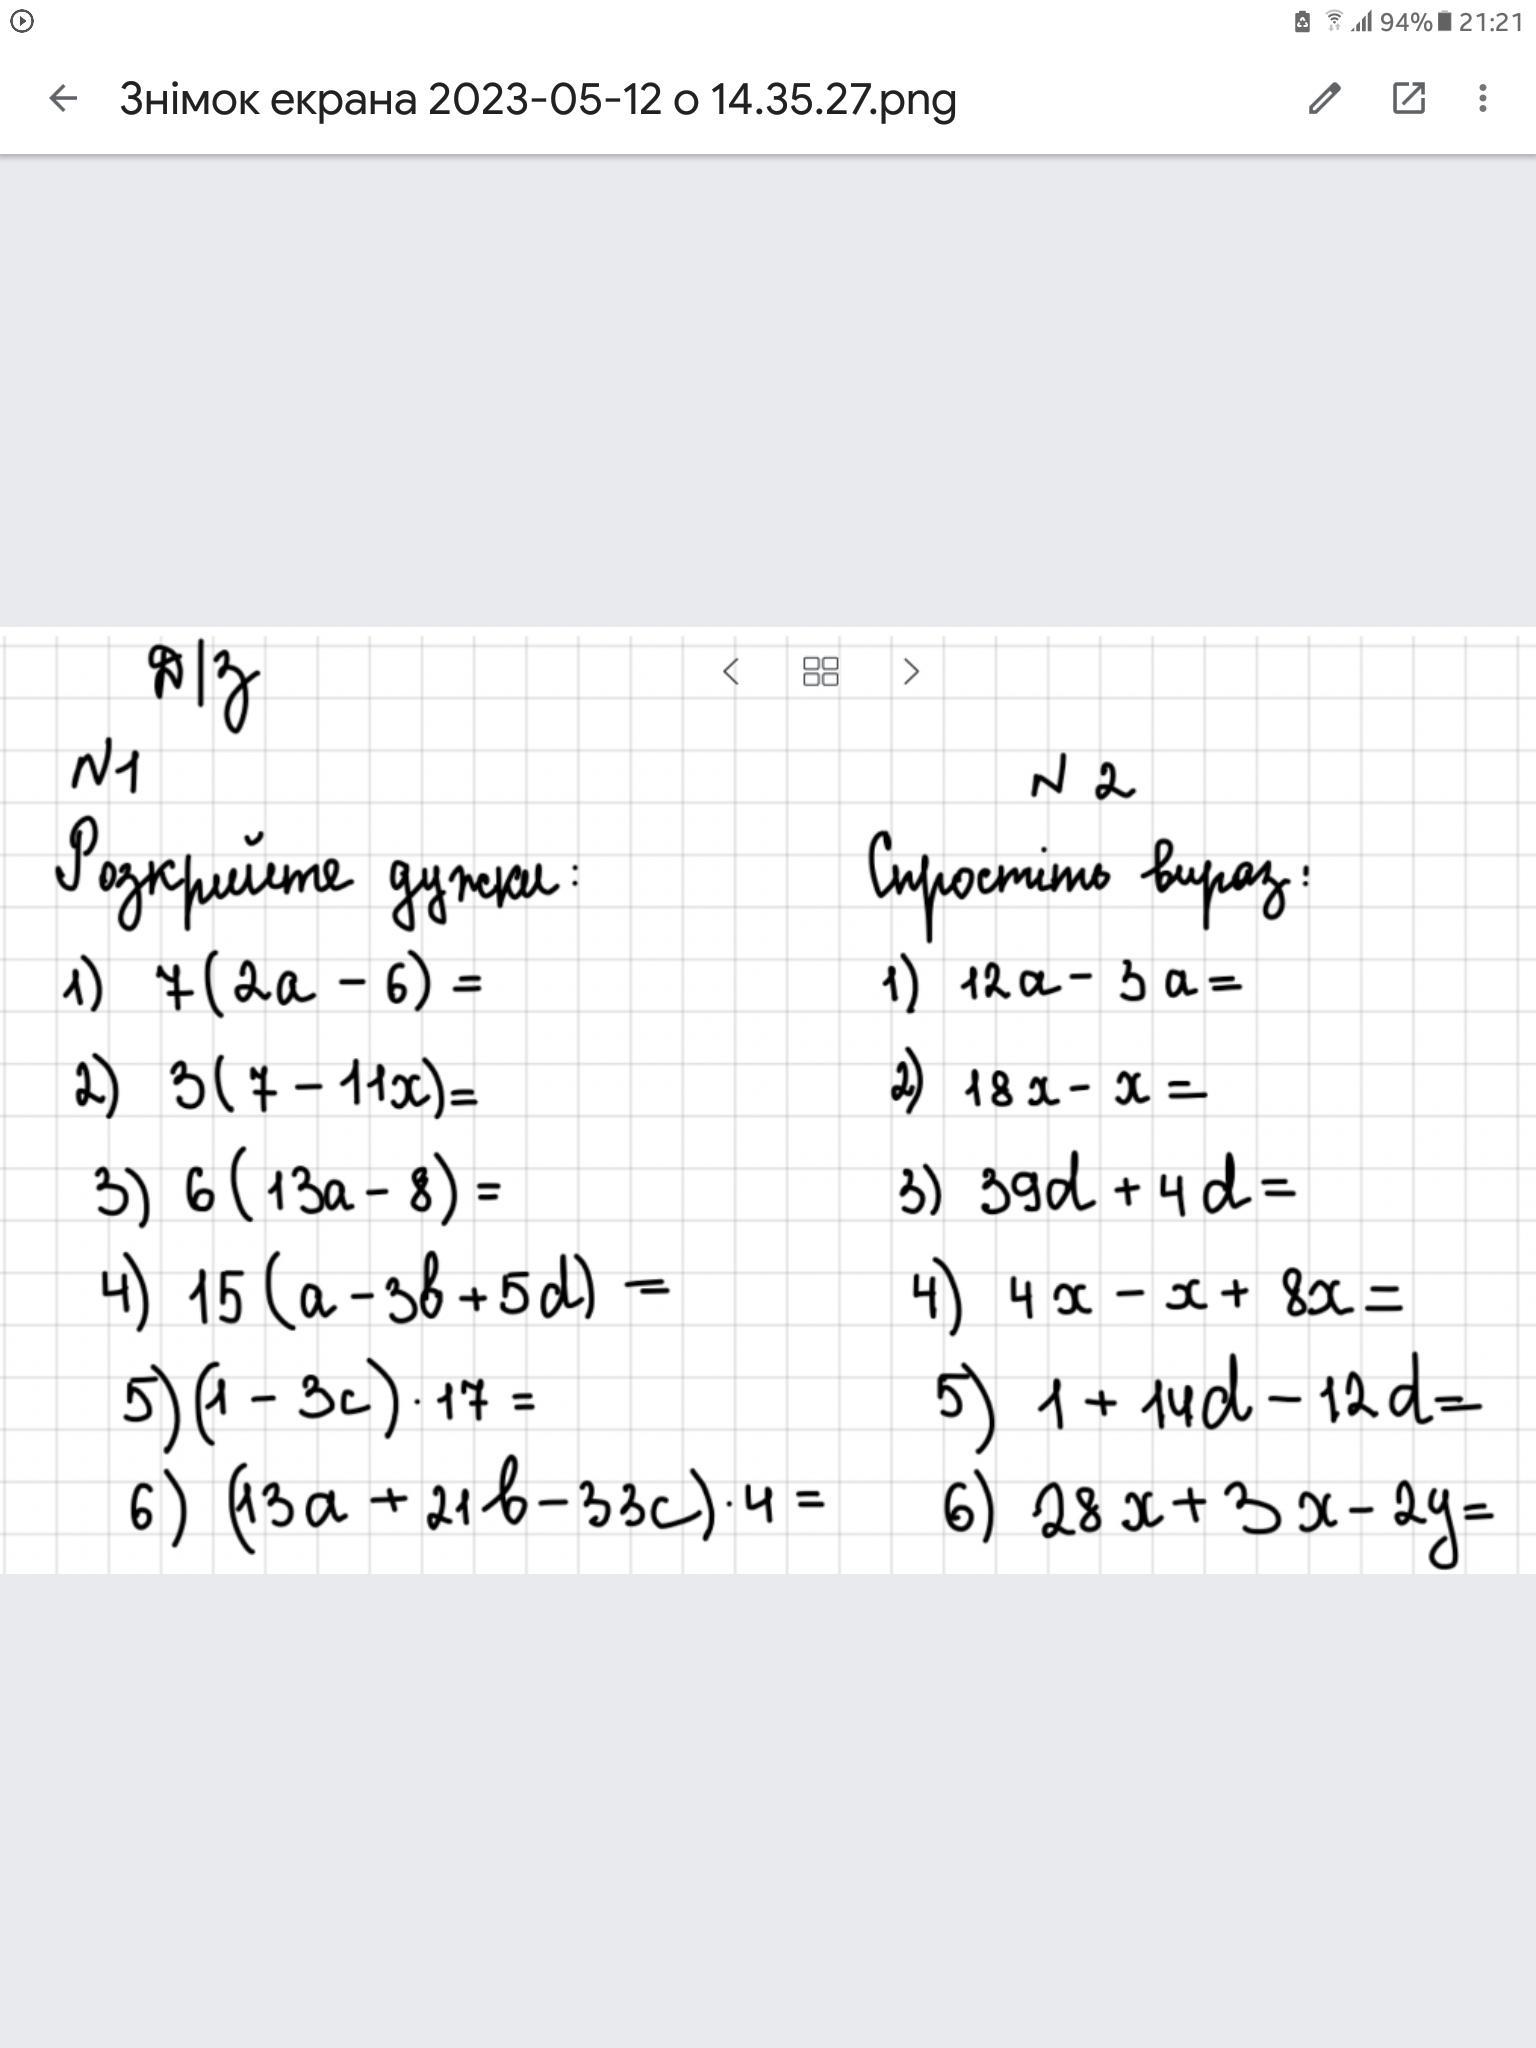 94% 21:21
Знімок екрана 2023-05-12 о 14.35.27.png
Д/з
N1
Розкрийте дужки:
1) 7(2a - 6) =
2) 3(7 - 11x) =
3) 6(13a - 8) =
4) 15(a - 3b + 5d) =
5) (1 - 3c) · 17 =
6) (13a + 21b - 33c) · 4 =
N 2
Спростіть вираз:
1) 12a - 3a =
2) 18x - x =
3) 39d + 4d =
4) 4x - x + 8x =
5) 1 + 14d - 12d =
6) 28x + 3x - 2y =